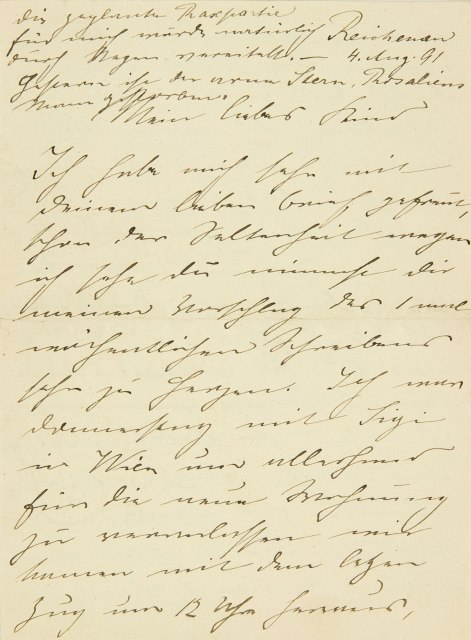 die geplante Raxpartie
für mich wurde natürlich Reichenau
durch Regen vereitelt. — 4. Aug. 91
Gestern ist der arme Stern, Rosaliens
Mann gestorben.
Mein liebes Kind
Ich habe mich sehr mit
Deinem lieben Brief gefreut,
schon der Seltenheit wegen
ich sehe du nimmst dir
meinen Vorschlag des 1 mal
wöchentlichen Schreibens
sehr zu Herzen. Ich war
Donnerstag mit Sigi
in Wien um allerhand
für die neue Wohnung
zu veranlassen wir
kamen mit dem letzten
Zug um 12 Uhr heraus,